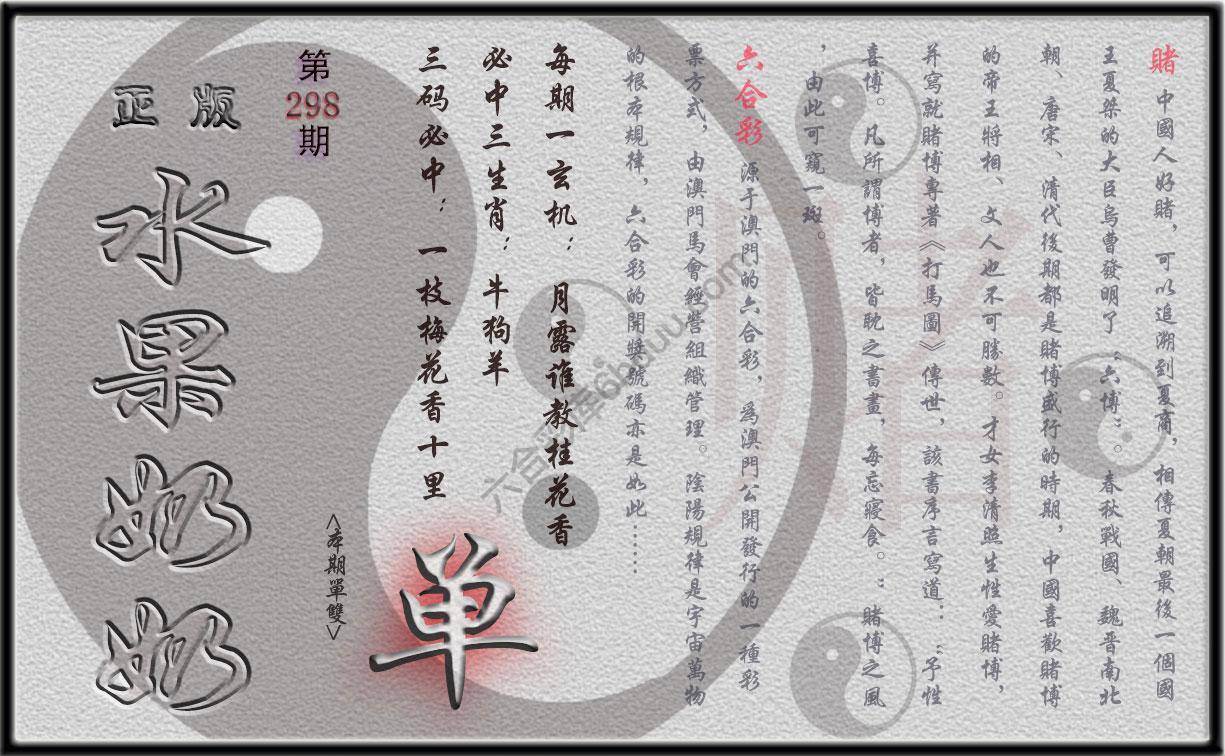 賭 中國人好賭，可以追溯到夏商，相傳夏朝最後一個國
王夏桀的大臣烏曹發明了“六博”。春秋戰國、魏晋南北
朝、唐宋、清代後期都是賭博盛行的時期，中國喜歡賭博
的帝王將相、文人也不可勝數。才女李清照生性愛賭博，
并寫就賭博專著《打馬圖》傳世，該書序言寫道：“予性
喜博。凡所謂博者，皆耽之書畫，每忘寢食。”賭博之風
，由此可窺一斑。
六合彩 源于澳門的六合彩，爲澳門公開發行的一種彩
票方式，由澳門馬會經營組織管理。陰陽規律是宇宙萬物
的根本規律，六合彩的開獎號碼亦是如此……
每期一玄机：月露谁教桂花香
必中三生肖：牛狗羊
三码必中：一枝梅花香十里
单
<本期單雙>
第298期
正版
水果奶奶
賭
六合彩库6hduu.com